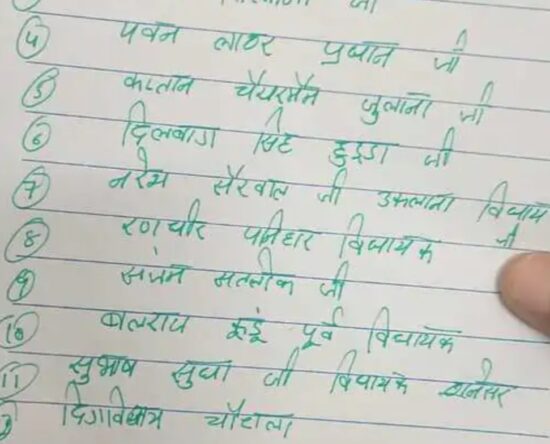 जी
④ पवन लाठर प्रधान जी
⑤ कप्तान चैयरमैन जुलाना जी
⑥ दिलबाग सिंह हुड्डा जी
⑦ नरेश सैरवाल जी उकलाना विधायक जी
⑧ रणधीर पनिहार विधायक
⑨ जी
⑩ बलराज कुंडू पूर्व विधायक
11 सुभाष सुधा जी विधायक थानेसर
चौटाला